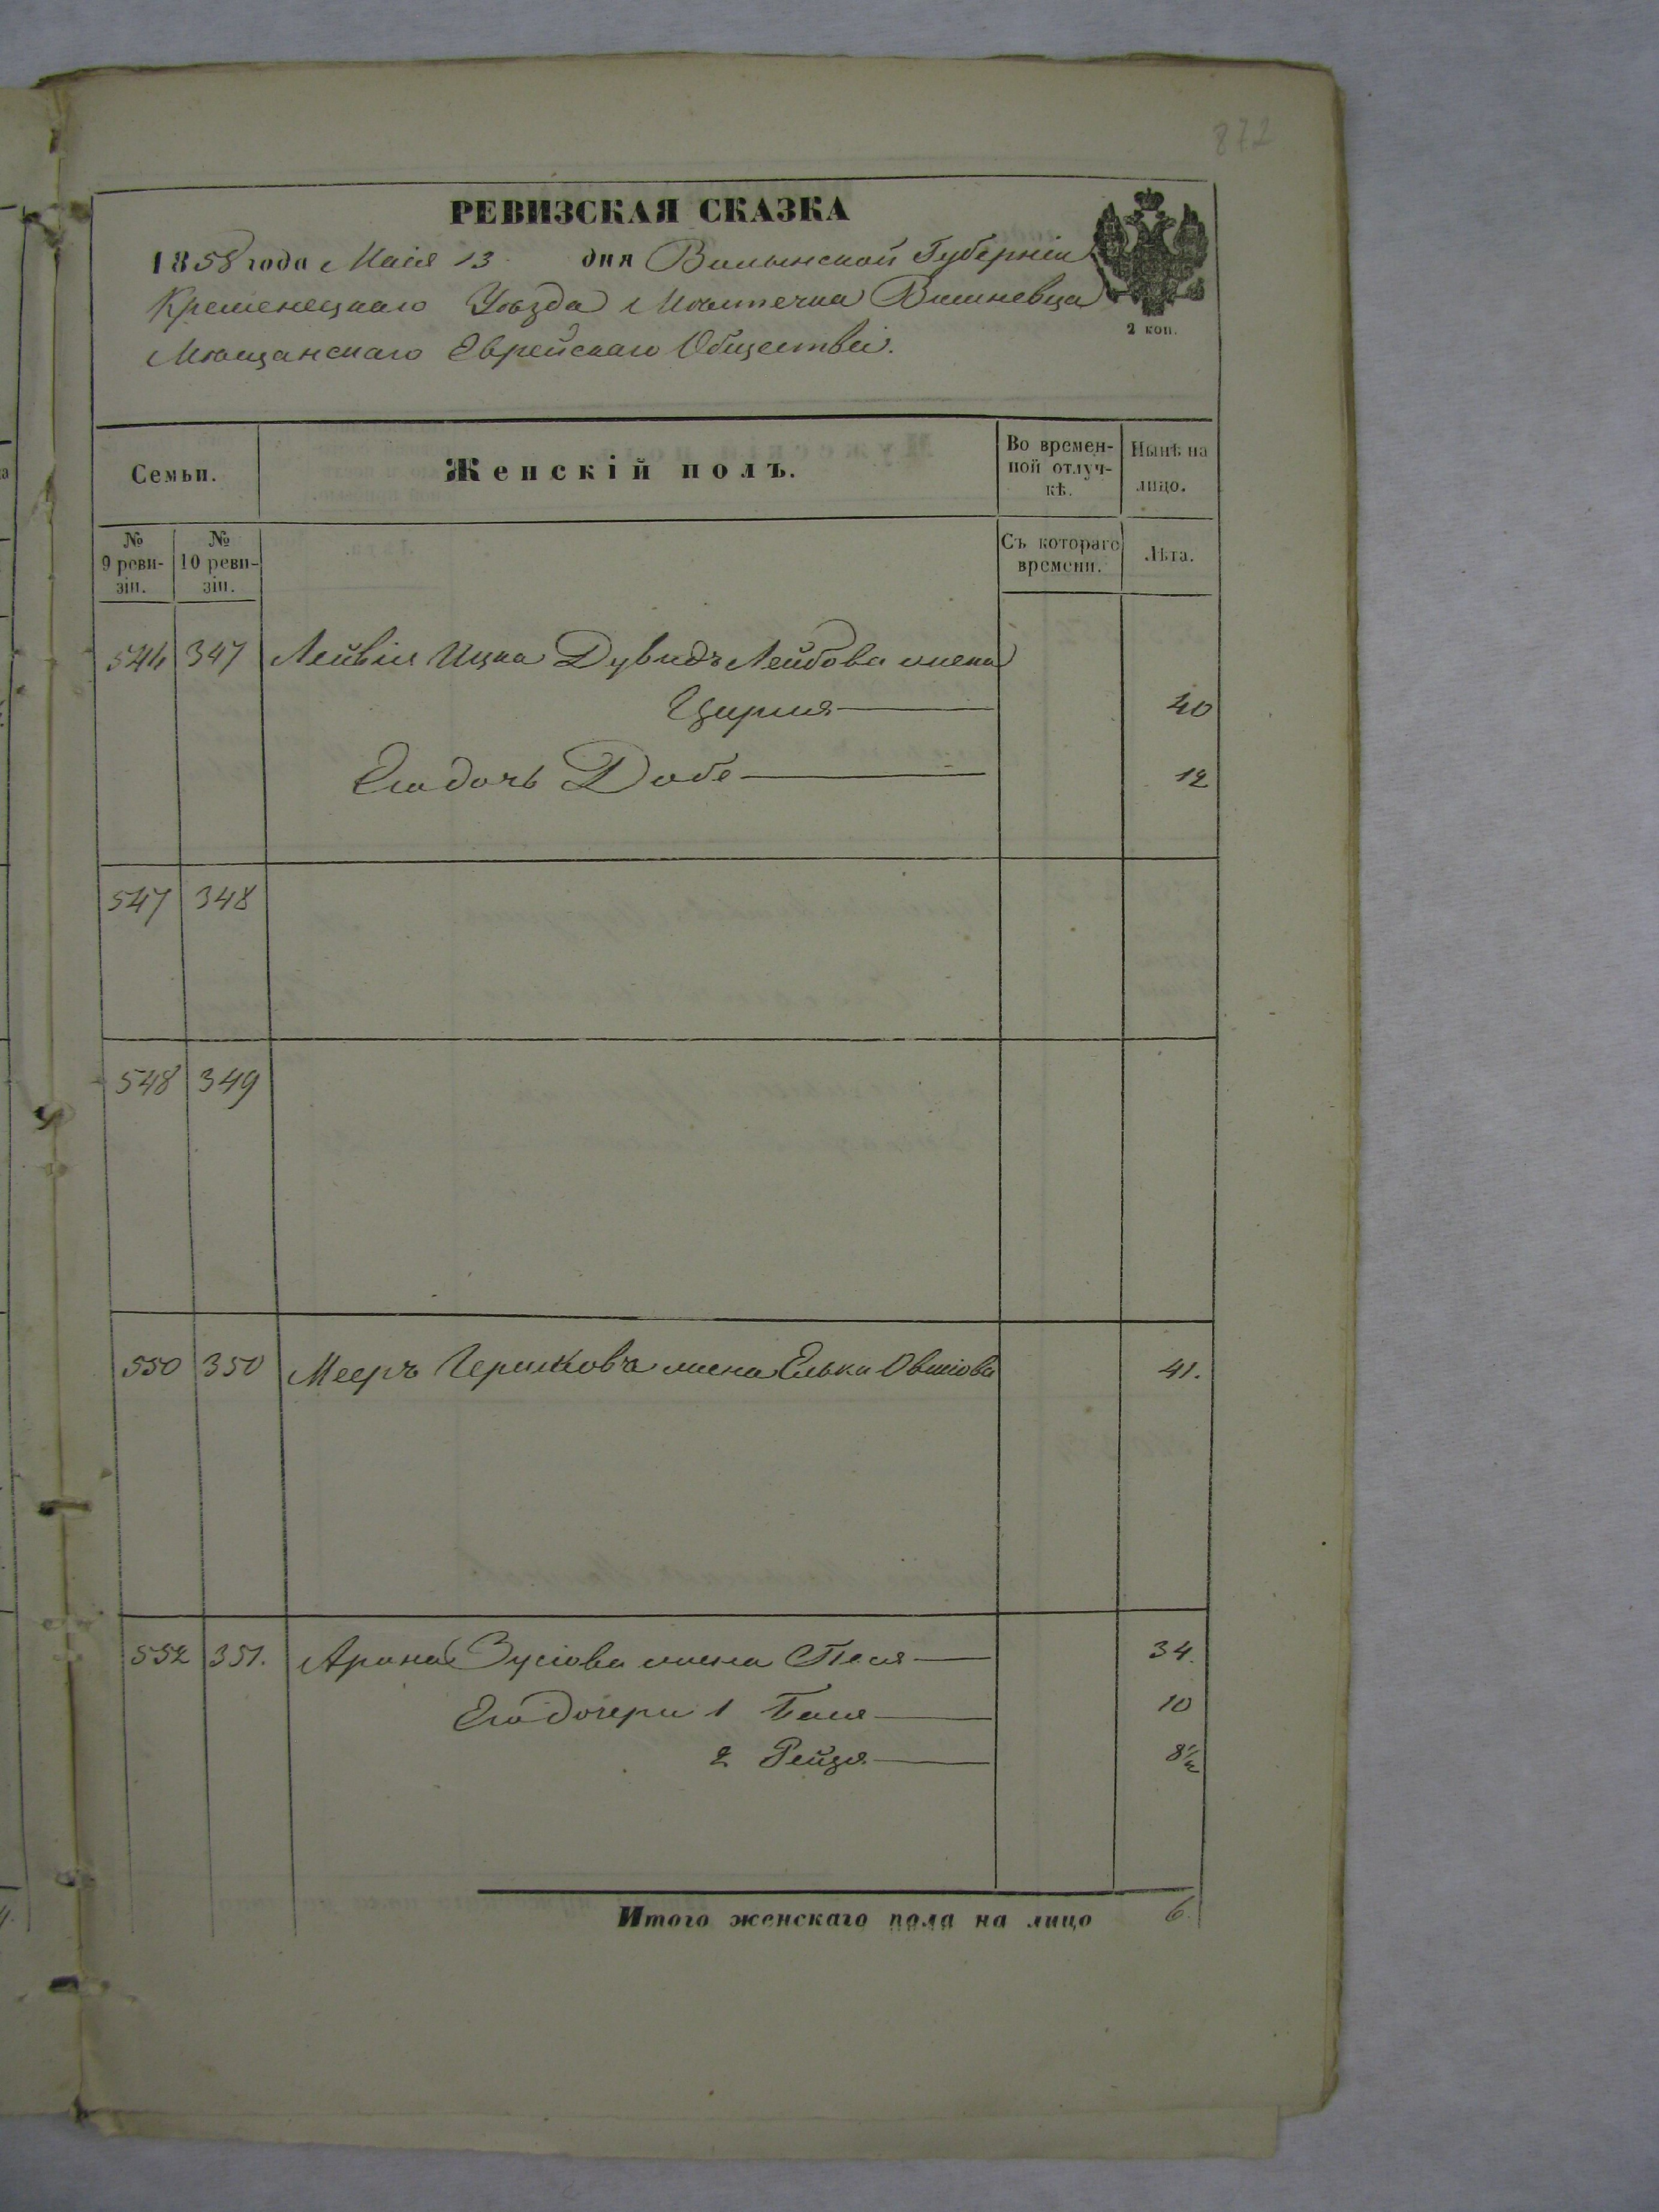 872
РЕВИЗСКАЯ СКАЗКА
1858 года Маія 13 дня Волынской Губерніи
Кременецкаго Уѣзда Мѣстечка Вишневца
Мѣщанскаго Еврейскаго Общества.
2 коп.
Семьи. Женскій полъ. Во временной отлучкѣ. Нынѣ на лицо.
№ 9 ревизіи. № 10 ревизіи. Съ котораго времени. Лѣта.
544 347 Лейвія Ицка Дувидъ Лейбова жена
Цирля 40
Его дочь Добе 12
547 348
548 349
550 350 Мееръ Гершкова жена Елька Овшіова 41.
552 351. Арона Зусіова жена Песя 34.
Его дочери 1 Бася 10
2 Рейзя 8½
Итого женскаго пола на лицо 6.